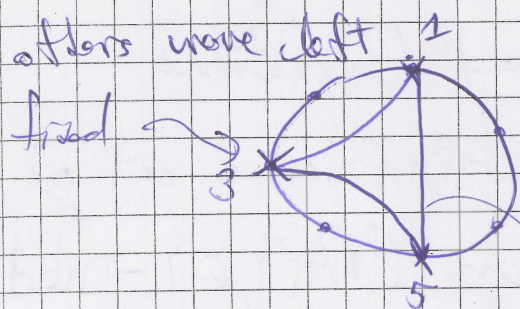 others move left 1
fixed
3
5